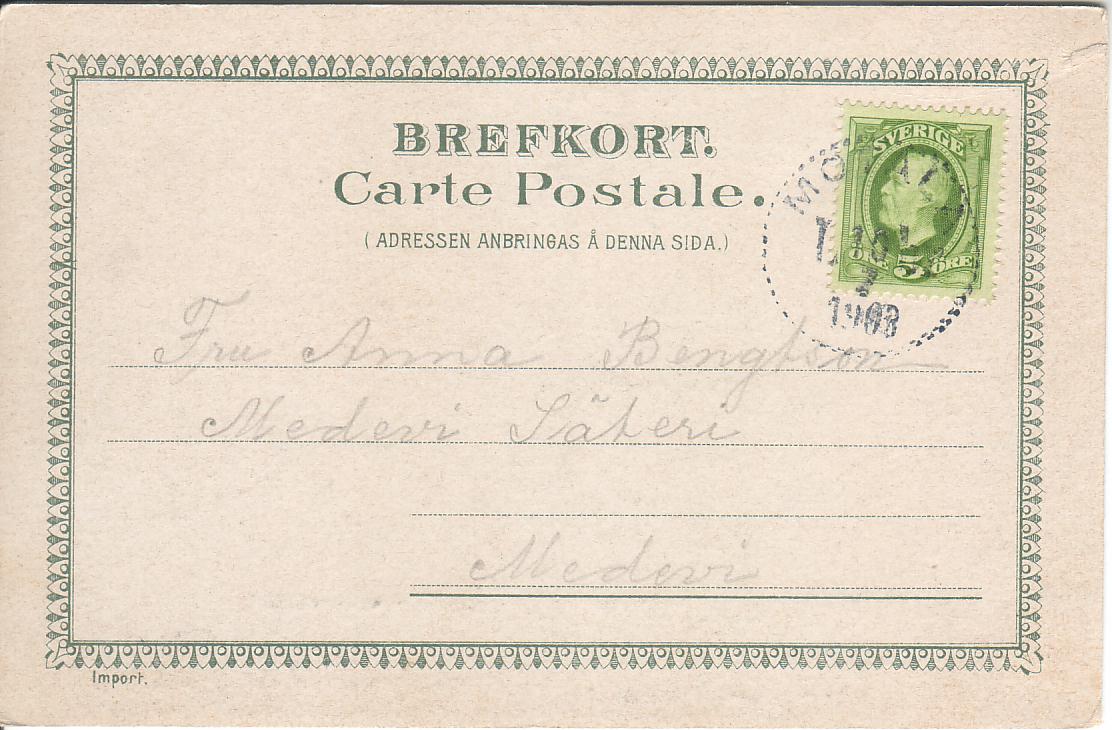 BREFKORT.
Carte Postale.
(ADRESSEN ANBRINGAS Å DENNA SIDA.)
SVERIGE
5 ÖRE
1903
Fru Anna Bengtson
Medevi Säteri
Medevi
Import.